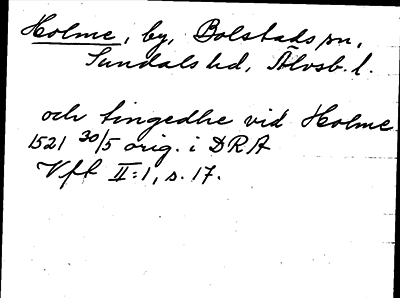 Holme, by, Bolstads sn,
Sundals hd, Älvsb. l.
och tingedhe vid Holme
1521 30/5 orig. i DRA
Vft II:1, s. 17.